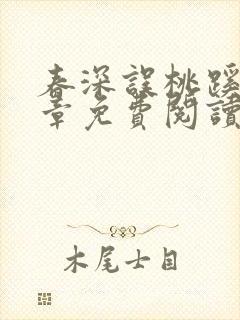 春深誤桃蹊
章免費閱讀
木尾士目